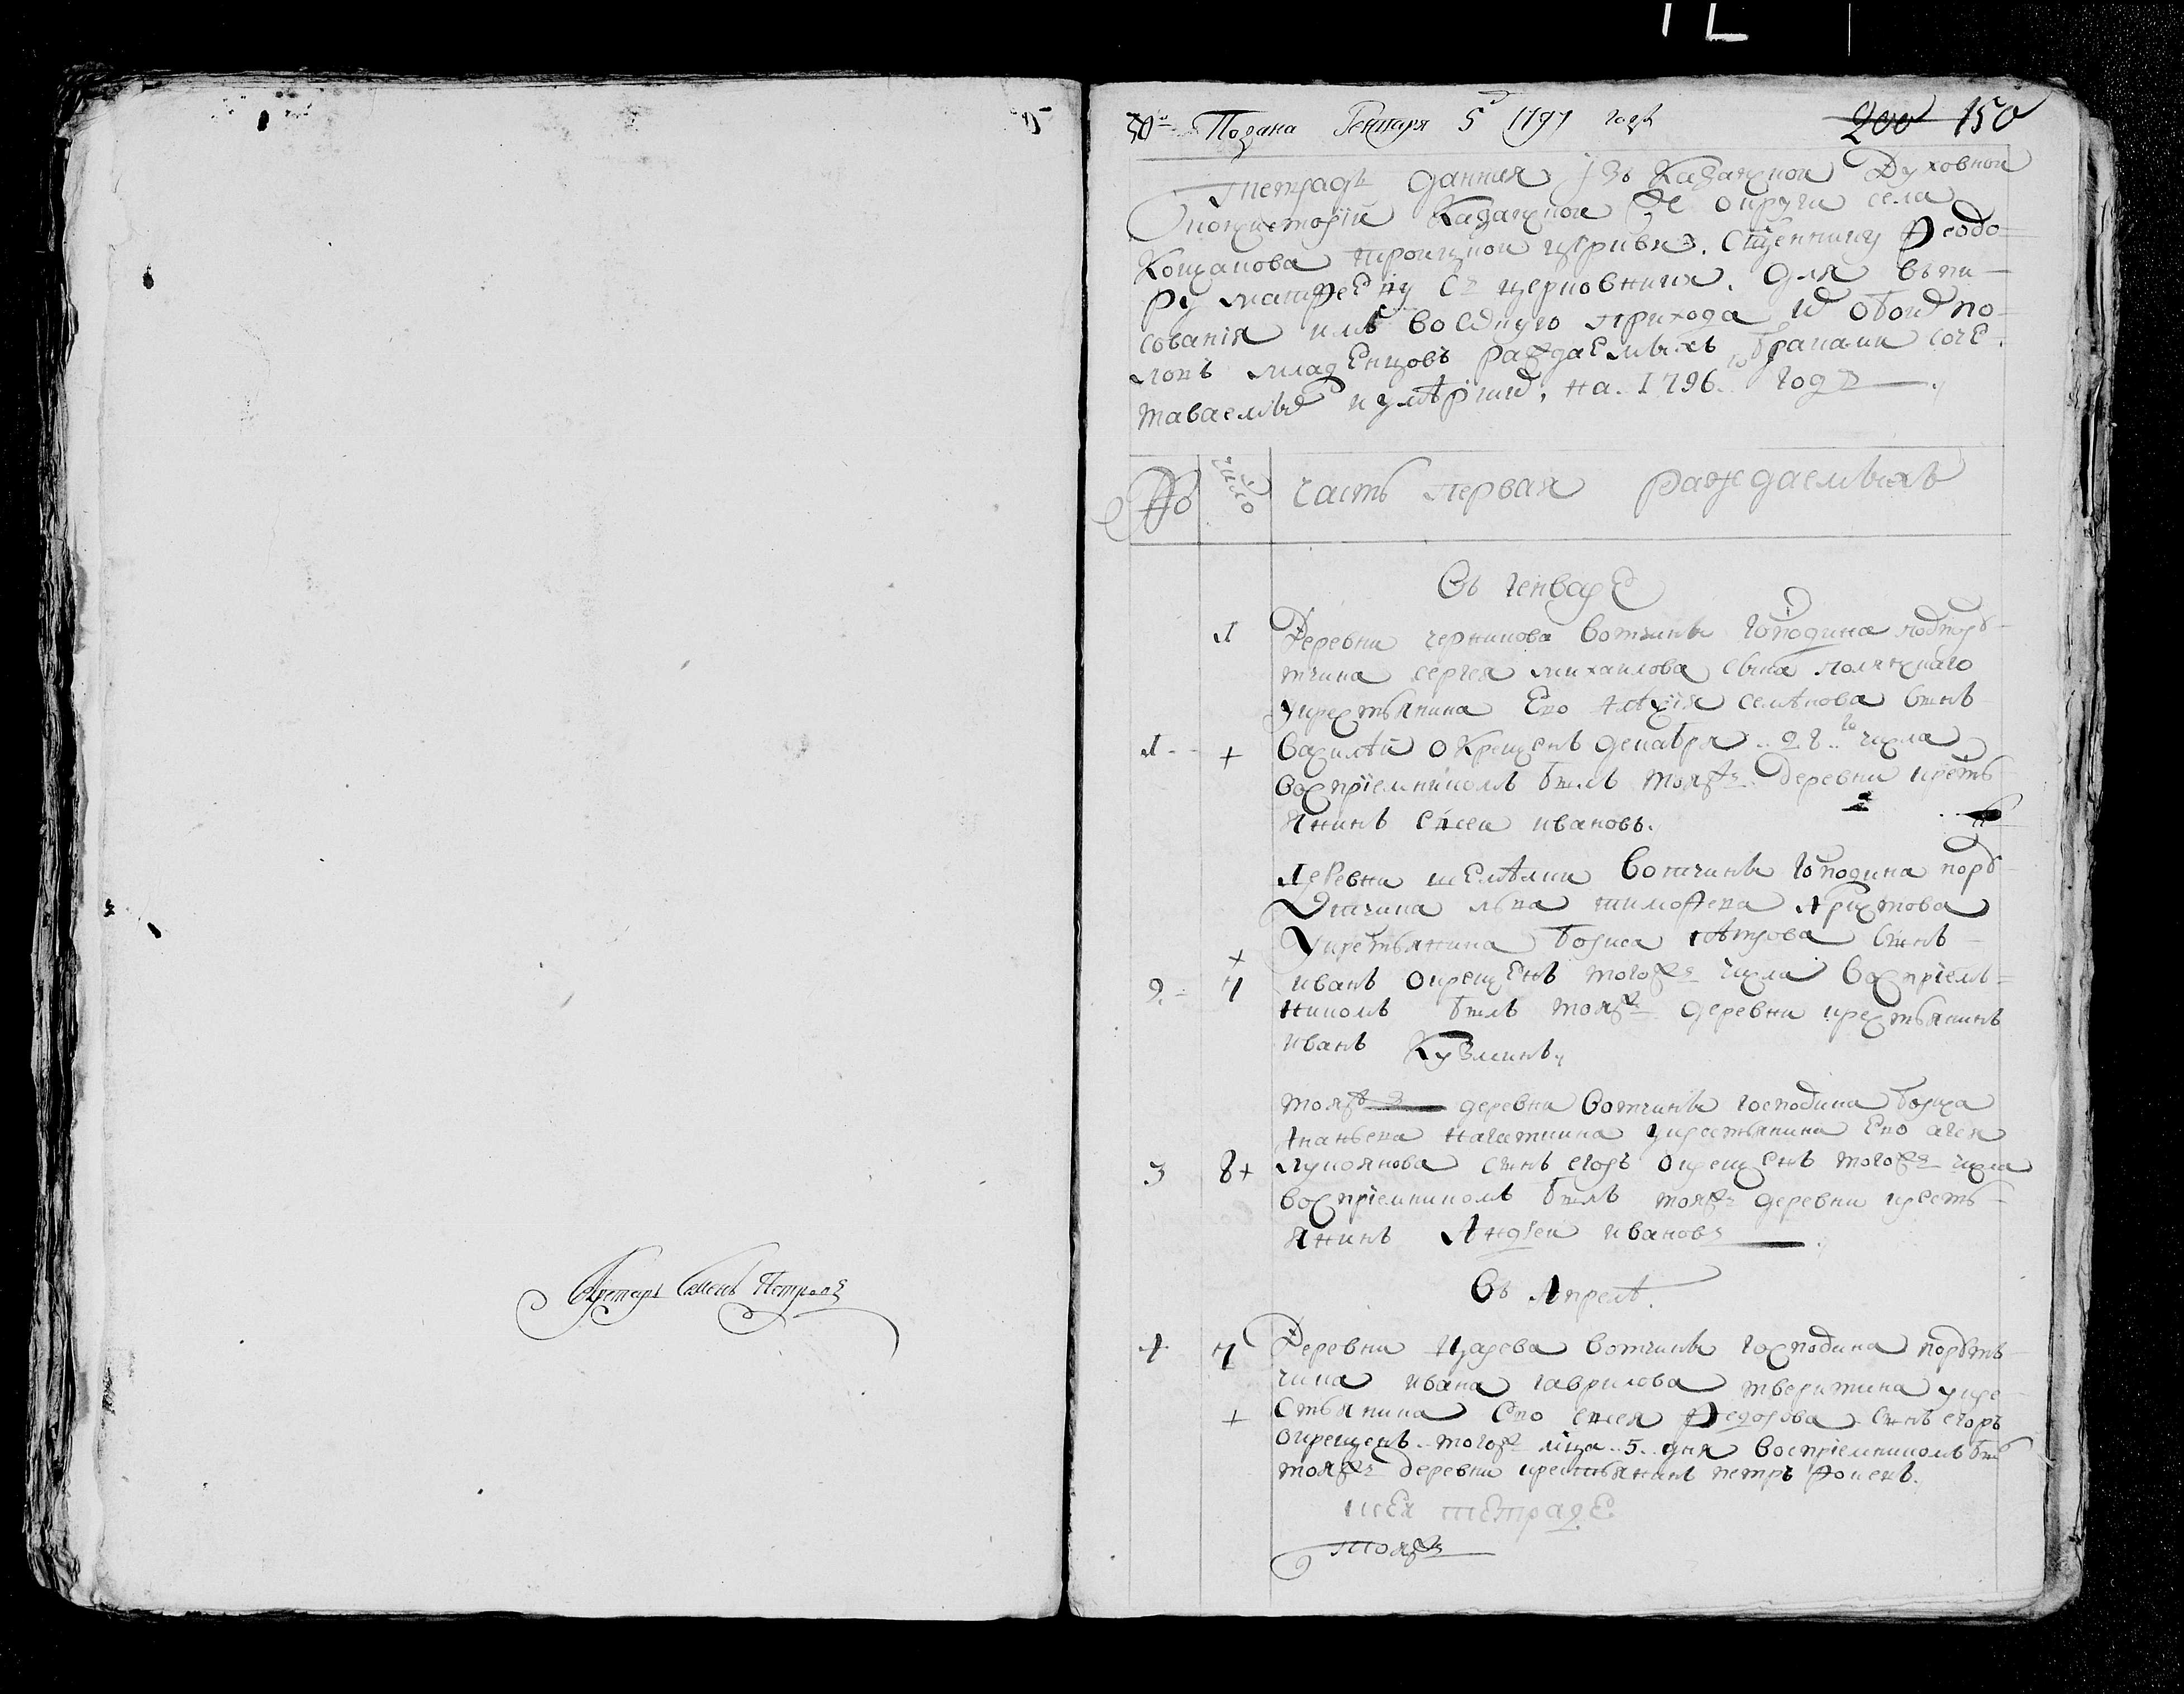 Секретарь Семенъ Петровъ
Подана Генваря 5 1797 года
200 150
Тетрадь данная изъ Казанской Духовной
Консисторіи Казанской же округи села
троицкой церкви священнику Феодо-
ру Матфееву съ церковники для впи-
сования имъ всѣднуго прихода обоихъ по-
ловъ младенцовъ раждаемыхъ браками соче-
таваемыхъ и умерших на 1796 годъ
№ число часть первая раждаемыхъ
Въ генваре
1 Деревни черникова вотчины господина подпору-
тчика сергея михаилова сына полянскаго
у крестьянина Его семенова сынъ
1 + Василѣй окрещенъ декабря 28го числа
восприемникомъ былъ тояжъ деревни кресть-
янинъ евсеи ивановъ.
Деревни вотчины господина пору-
тчика льва тимофева
У крестьянина бориса петрова сынъ
+
2 7 иванъ окрещенъ тогожъ числа восприем-
никомъ былъ тояжъ деревни крестьянинъ
иванъ Кузминъ
тояжъ деревни вотчины господина бориса
Ананьева нагаткина у крестьянина Ево
3 8+ лукоянова сынъ егоръ окрещенъ тогожъ числа
восприемникомъ былъ тояжъ деревни кресть-
янинъ Андреи ивановъ
Въ Апрелѣ.
4 4 Деревни Царева вотчины господина порут-
чика ивана гаврилова тверитина у кре-
+ стьянина Ево евсея Федорова сынъ егоръ
окрещенъ тогожъ мца 5 дня восприемникомъ былъ
тояжъ деревни крестьянинъ петръ фокинъ.
К сей тетраде
тояжъ